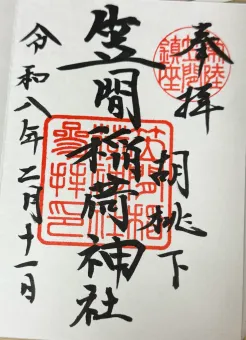 奉拝
常陸
笠間
鎮座
胡桃下
笠間稲荷神社
令和八年二月十一日